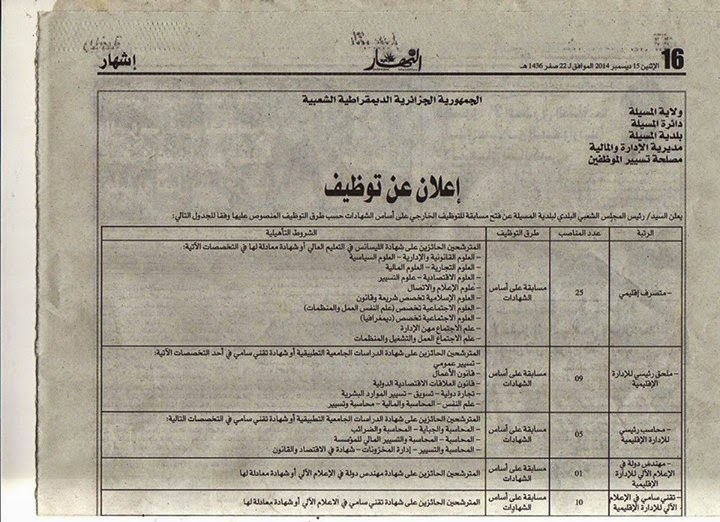 16
الإثنين 15 ديسمبر 2014 الموافق لـ 22 صفر 1436 هـ
النهار
إشهار
الجمهورية الجزائرية الديمقراطية الشعبية
ولاية المسيلة
دائرة المسيلة
بلدية المسيلة
مديرية الإدارة والمالية
مصلحة تسيير الموظفين
إعلان عن توظيف
يعلن السيد/ رئيس المجلس الشعبي البلدي لبلدية المسيلة عن فتح مسابقة للتوظيف الخارجي على أساس الشهادات حسب طرق التوظيف المنصوص عليها وفقا للجدول التالي:
الرتبة
عدد المناصب
طرق التوظيف
الشروط التأهيلية
– متصرف إقليمي
25
مسابقة على أساس
الشهادات
المترشحين الحائزين على شهادة الليسانس في التعليم العالي أو شهادة معادلة لها في التخصصات الآتية:
– العلوم القانونية والإدارية – العلوم السياسية
– العلوم التجارية – العلوم المالية
– العلوم الاقتصادية – علوم التسيير
– علوم الإعلام والاتصال
– العلوم الإسلامية تخصص شريعة وقانون
– العلوم الاجتماعية تخصص (علم النفس العمل والمنظمات)
– العلوم الاجتماعية تخصص (ديمغرافيا)
– علم الاجتماع مهن الإدارة
– علم الاجتماع العمل والتشغيل والمنظمات
– ملحق رئيسي للإدارة
الإقليمية
09
مسابقة على أساس
الشهادات
المترشحين الحائزين على شهادة الدراسات الجامعية التطبيقية أو شهادة تقني سامي في أحد التخصصات الآتية:
– تسيير عمومي
– قانون الأعمال
– قانون العلاقات الاقتصادية الدولية
– تجارة دولية – تسويق – تسيير الموارد البشرية
– علم النفس – المحاسبة والمالية – محاسبة وتسيير
– محاسب رئيسي
للإدارة الإقليمية
05
مسابقة على أساس
الشهادات
المترشحين الحائزين على شهادة الدراسات الجامعية التطبيقية أو شهادة تقني سامي في التخصصات التالية:
– المحاسبة والجباية – المحاسبة والضرائب
– المحاسبة – المحاسبة والتسيير المالي للمؤسسة
– المحاسبة والتسيير – إدارة المخزونات – شهادة في الاقتصاد والقانون
– مهندس دولة في
الإعلام الآلي للإدارة
الإقليمية
01
مسابقة على أساس
الشهادات
المترشحين الحائزين على شهادة مهندس دولة في الإعلام الآلي أو شهادة معادلة لها
– تقني سامي في الإعلام
الآلي للإدارة الإقليمية
10
مسابقة على أساس
الشهادات
المترشحين الحائزين على شهادة تقني سامي في الاعلام الآلي أو شهادة معادلة لها